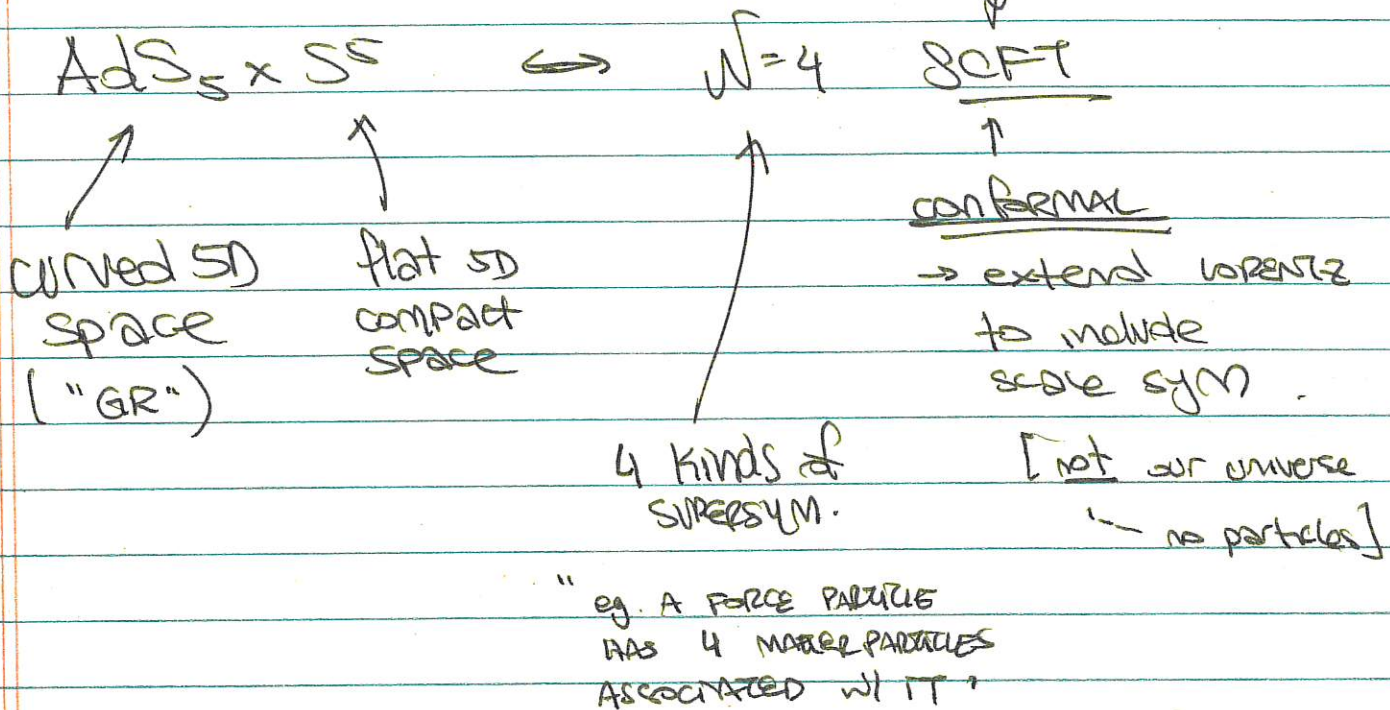 AdS₅ x S⁵ ⟺ N=4 SCFT
curved 5D
space
("GR")
flat 5D
compact
space
4 kinds of
SUPERSYM.
conformal
→ extend LORENTZ
to include
scale sym.
[not our universe
no particles]
"eg. A FORCE PARTICLE
HAS 4 MATTER PARTICLES
ASSOCIATED W/ IT"